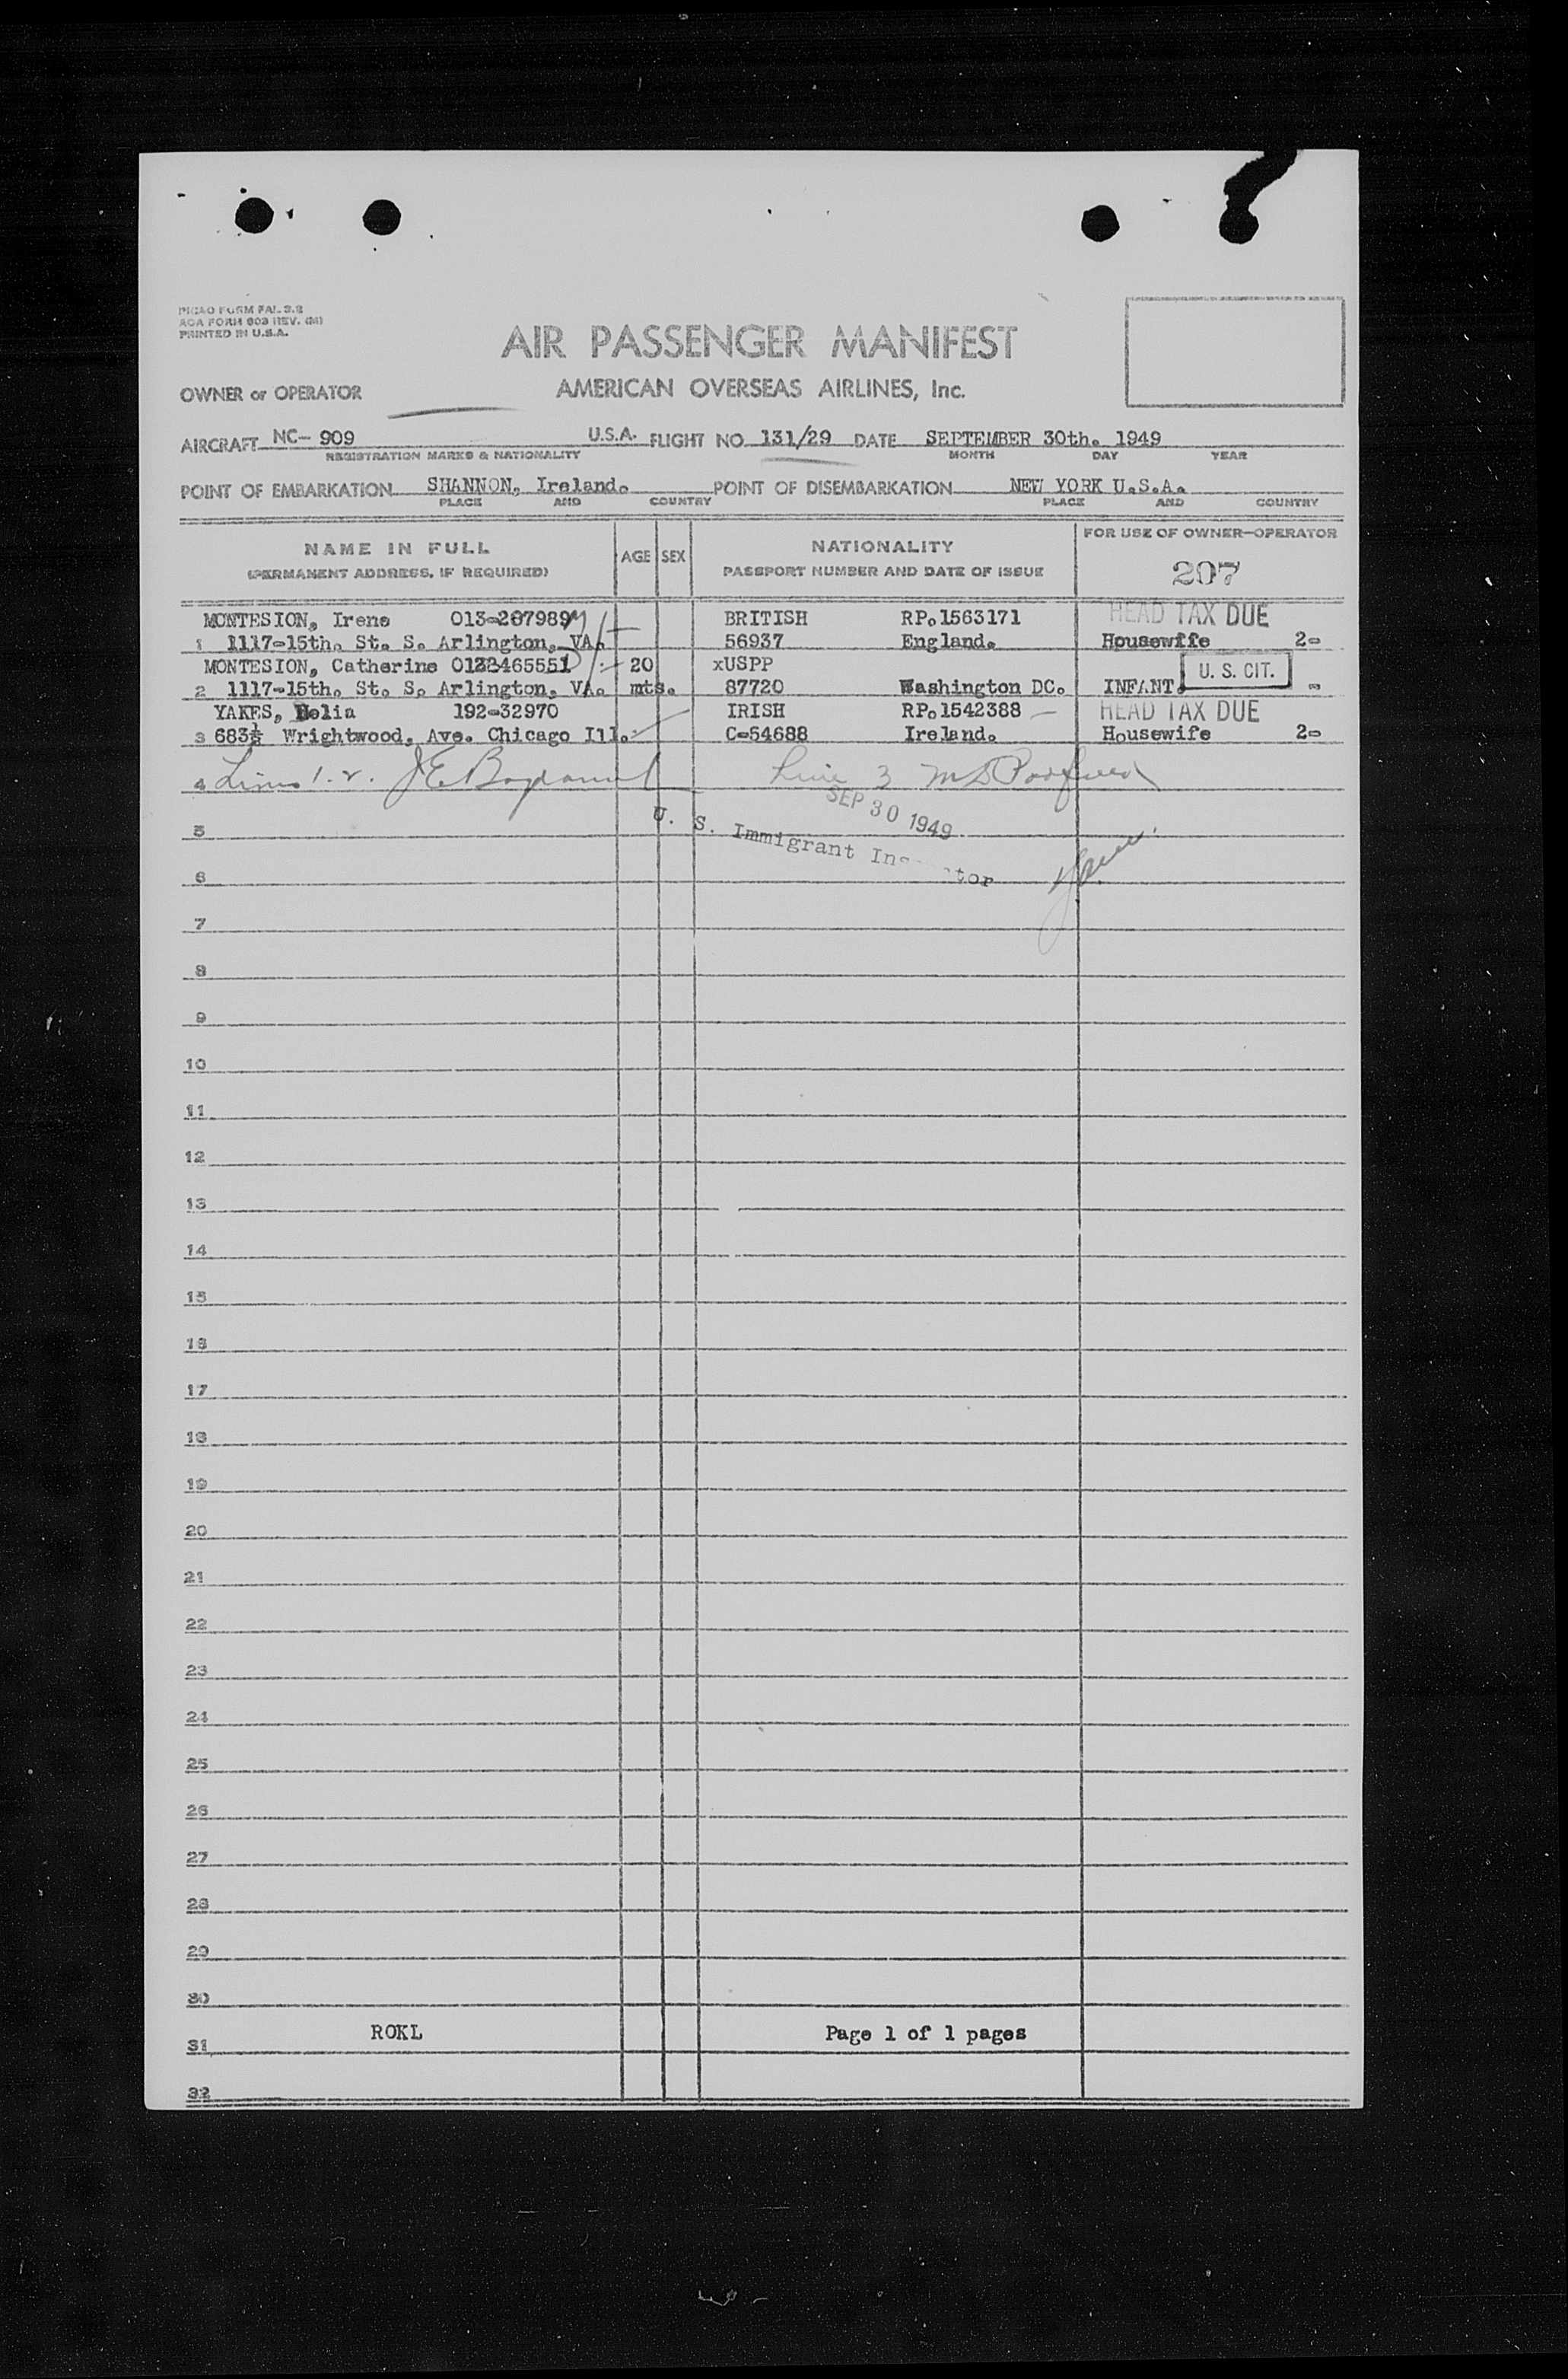 PICAO FORM FAL 2.2
AOA FORM 903 REV. (M)
PRINTED IN U.S.A.
AIR PASSENGER MANIFEST
OWNER or OPERATOR AMERICAN OVERSEAS AIRLINES, Inc.
AIRCRAFT NC- 909 U.S.A. FLIGHT NO. 131/29 DATE SEPTEMBER 30th. 1949
REGISTRATION MARKS & NATIONALITY MONTH DAY YEAR
POINT OF EMBARKATION SHANNON, Ireland. POINT OF DISEMBARKATION NEW YORK U.S.A.
PLACE AND COUNTRY PLACE AND COUNTRY
NAME IN FULL AGE SEX NATIONALITY FOR USE OF OWNER-OPERATOR
(PERMANENT ADDRESS, IF REQUIRED) PASSPORT NUMBER AND DATE OF ISSUE 207
MONTESION, Irene 013-287989 BRITISH RP.1563171 HEAD TAX DUE
1 1117-15th. St. S. Arlington, VA. 56937 England. Housewife 2-
MONTESION, Catherine 20 xUSPP U. S. CIT.
2 1117-15th. St. S. Arlington, VA. mts. 87720 Washington DC. INFANT. -
YAKES, Delia 192-32970 IRISH RP.1542388 HEAD TAX DUE
3 683½ Wrightwood, Ave. Chicago Ill. C-54688 Ireland. Housewife 2-
4 Lines 1.2. Line 3
SEP 30 1949
5
U. S. Immigrant
6
7
8
9
10
11
12
13
14
15
16
17
18
19
20
21
22
23
24
25
26
27
28
29
30
ROKL Page 1 of 1 pages
31
32